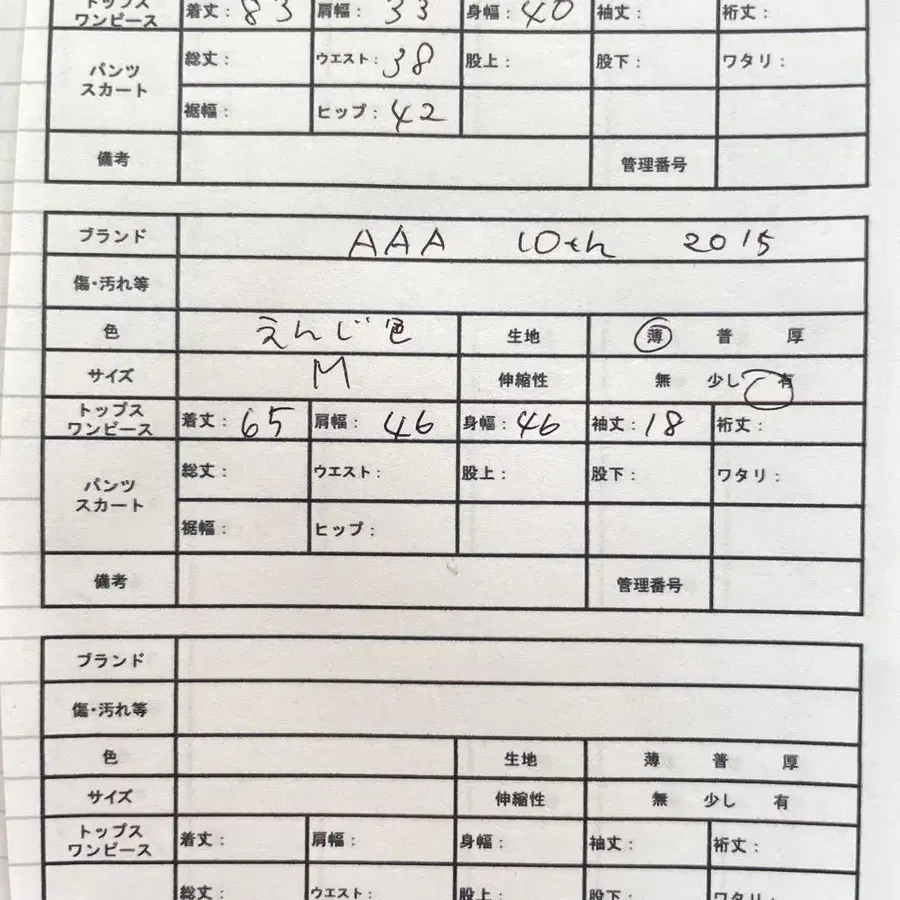 トップス
ワンピース 着丈：83 肩幅：33 身幅：40 袖丈： 裄丈：
パンツ
スカート
総丈： ウエスト：38 股上： 股下： ワタリ：
裾幅： ヒップ：42
備考 管理番号
ブランド AAA 10th 2015
傷・汚れ等
色 えんじ色 生地 薄 普 厚
サイズ M 伸縮性 無 少し 有
トップス
ワンピース 着丈：65 肩幅：46 身幅：46 袖丈：18 裄丈：
パンツ
スカート
総丈： ウエスト： 股上： 股下： ワタリ：
裾幅： ヒップ：
備考 管理番号
ブランド
傷・汚れ等
色 生地 薄 普 厚
サイズ 伸縮性 無 少し 有
トップス
ワンピース 着丈： 肩幅： 身幅： 袖丈： 裄丈：
総丈： ウエスト： 股上： 股下： ワタリ：